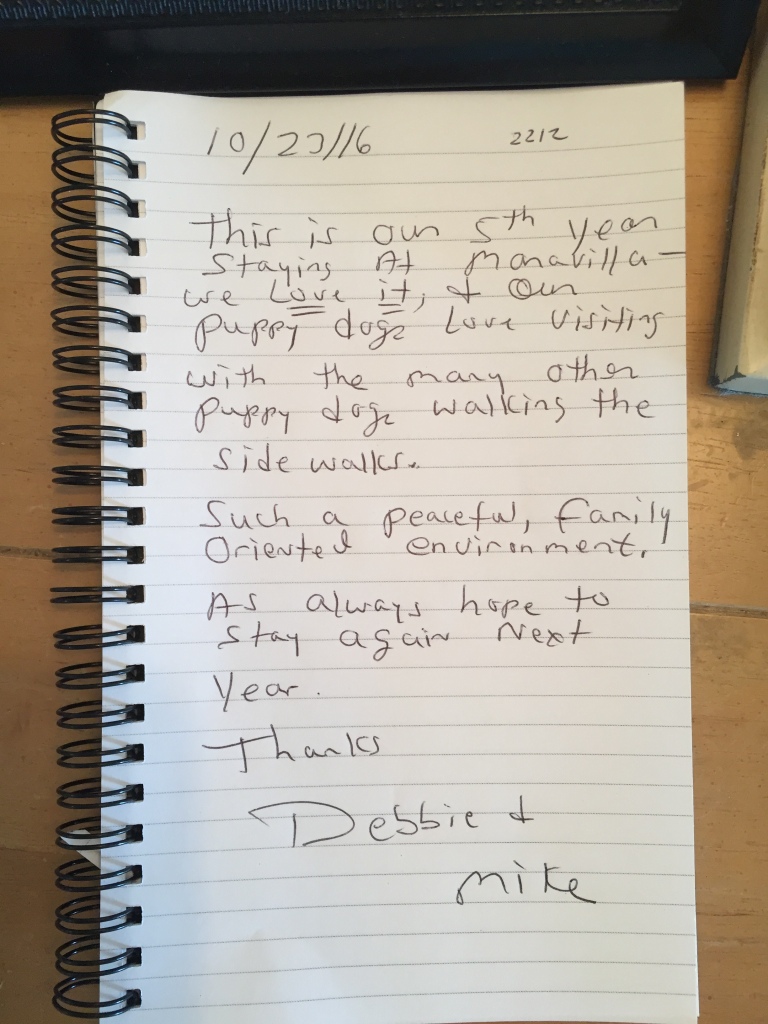 10/23/16 2212
This is our 5th year
Staying At Maravilla -
we Love it, & Our
puppy dogs Love visiting
with the many other
puppy dogs walking the
side walks.
Such a peaceful, family
Oriented environment.
As always hope to
stay again Next
Year.
Thanks
Debbie &
Mike